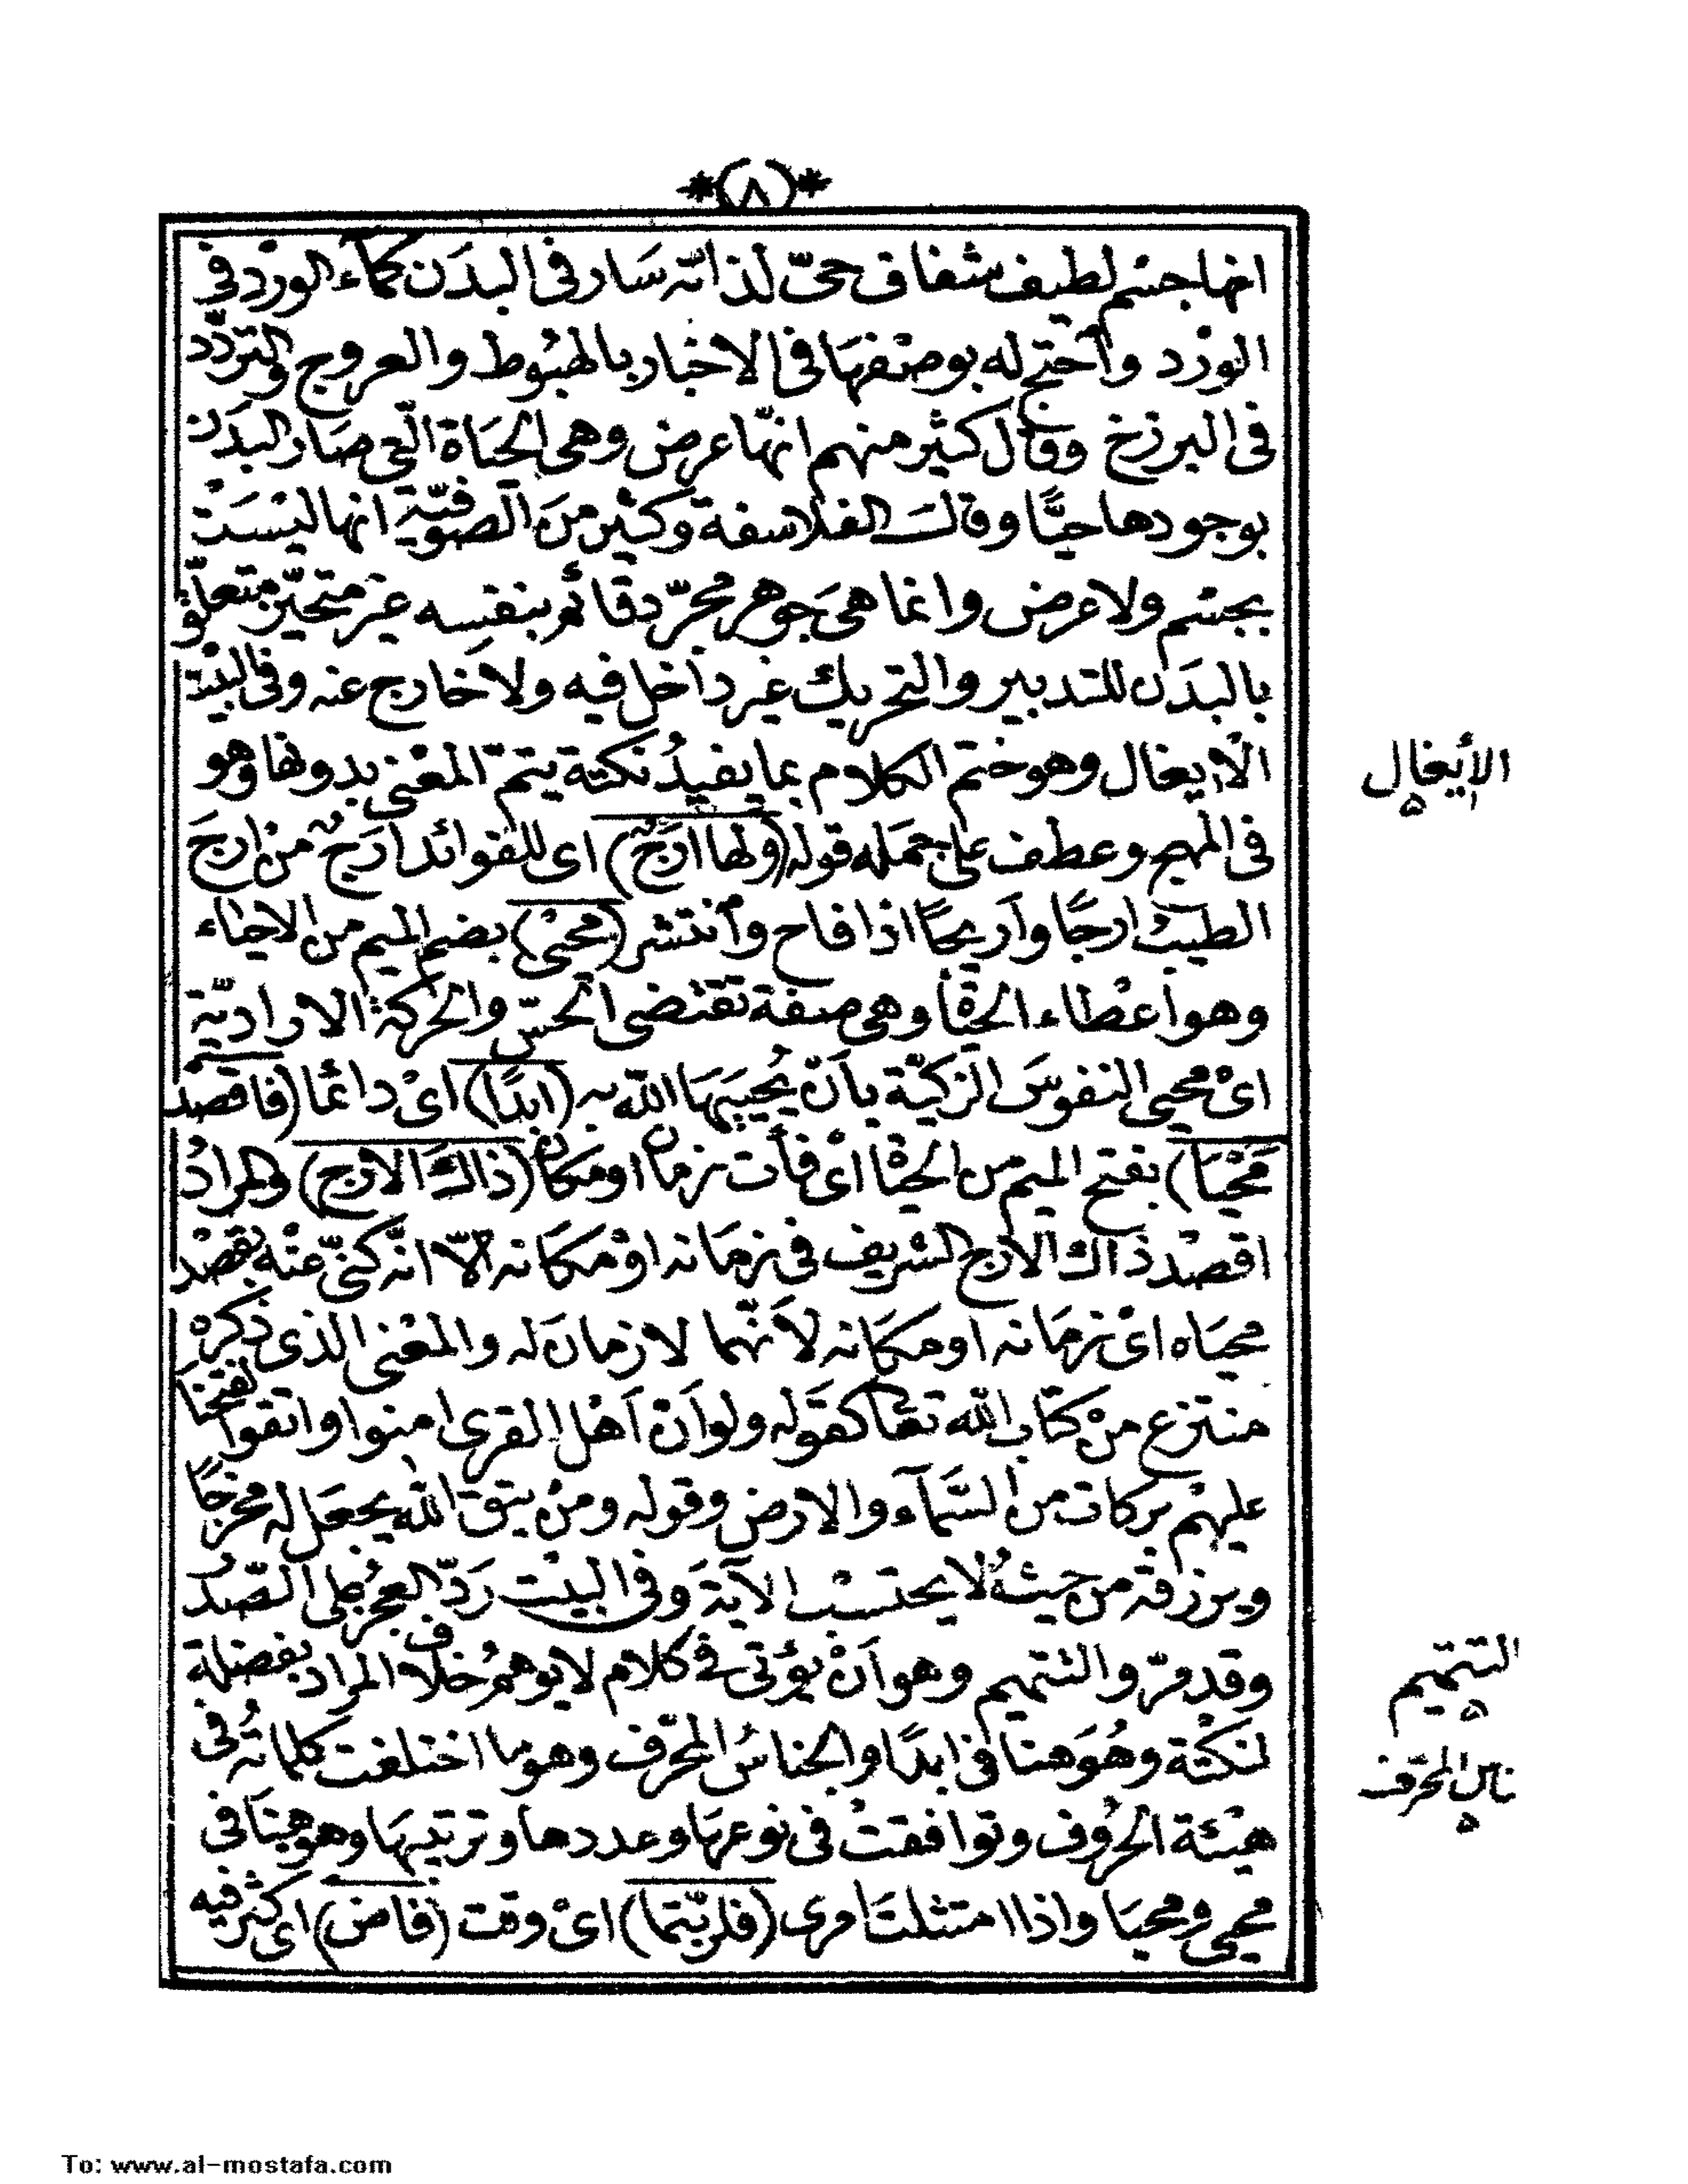 *(٨)*
انها جسْم لطيف شفاف حىّ لذاته سَار فى البدَن كمآء الورْد فى
الورْد واحتج له بوصْفهَا فى الاخبار بالهبُوط والعروج والتردّد
فى البرزخ وقال كثير منهم انهّا عرض وهى الحيَاة الّتى صَار البدَن
بوجودها حيًّا وقالت الفلاسفة وكثير منَ الصوفيّة انها ليْسَتْ
بجسْم ولا عرض وانما هىَ جوهر مجرّد قائم بنفسِه غير متحيّز متعلّق
بالبدَن للتدبير والتحريك غير داخل فيه ولا خارج عنه وفى البيْت
الايغال وهو ختم الكلام بما يفيدُ نكتة يتمّ المعْنى بدونها وهو
الأيغال
فى المهج وعطف على جمَله قوله (ولها ارَجٌ) اى للفوائد ارَجٌ من ارجَ
الطيبُ ارجًا وأريجًا اذا فاح وانتشر (محيىْ) بضم الميم من الاحيَاء
وهو اعْطاء الحيٰوة وهى صفة تقتضى الحسّ والحركة الاراديّة
اىْ محيى النفوسَ الزكيّة بأنْ يُحييَهَا اللّه به (ابدًا) اىْ دائمًا (فاقصْد
مَحْيَا) بفتح الميم من الحيٰوة اىْ فأت زمان او مكان (ذاكَ الارج) والمرادُ
اقصْد ذاك الارج الشريف فى زمَانه اوْ مكَانه الّا انّه كنّى عنْه بقصْد
محيَاه اىْ زمَانه او مكَانه لأنّهما لازمان له والمعْنى الذى ذكره
منتزع منْ كتاب اللّه تعَا كقوَله ولو أنْ أهْل القرى امنوا واتقوا لفتحنَا
عليهْم بركات من السَّمآء والارض وقوله ومنْ يتق اللّه يجعَل له مخرجًا
ويرزقه من حيثُ لا يحتسْب الآية وَفى البيْت رَدّ العجُز على الصّدْر
وقد مرّ والتتميم وهو أنْ يؤتى فى كلام لا يوهمُ خلاف المراد بفضلة
التتميم
لنكتْة وهُوَ هنا فى ابدًا والجناسُ المحرّف وهو ما اختلفت كلماتُه فى
ناس المحرّف
هيْئة الحرُوف وتوافقتْ فى نوعهَا وعددها وترتيبهَا وهو هنَا فى
محيى ومحيَا واذا امتثلتَ امرى (فلربّتما) اىْ وقت (فاض) اى كثر فيه
To: www.al-mostafa.com